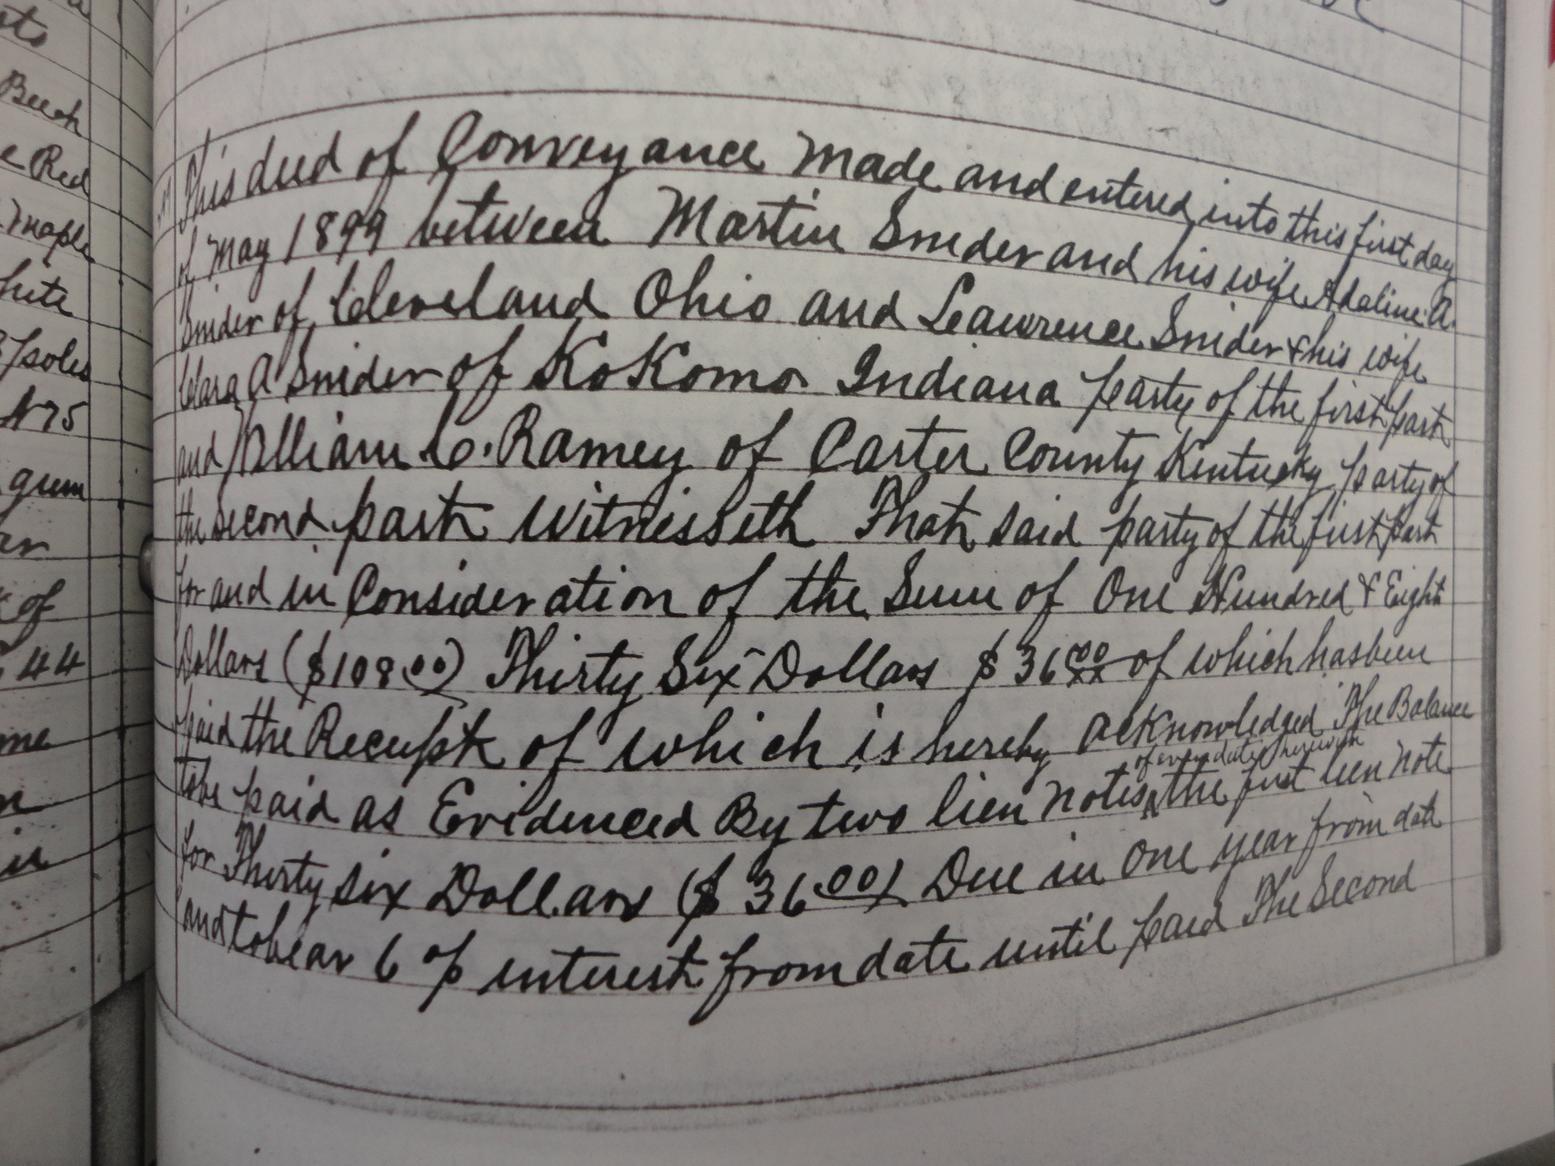 ts
Beech
e Red
Maple
hite
poles
N75
gum
of
44
me
This deed of Conveyance Made and entered into this first day
of May 1899 between Martin Snider and his wife Adaline A.
Snider of Cleveland Ohio and Leawrence Snider & his wife
Clara A Snider of KoKomo Indiana party of the first part
and William C. Ramey of Carter County Kentucky party of
the second part Witnesseth That said party of the first part
for and in Consideration of the Sum of One Hundred & Eight
Dollars ($108.00) Thirty Six Dollars $36.00 of which has been
paid the Receipt of which is hereby acknowledged The Balance
of even date herewith
to be paid as Evidenced By two lien notes, the first lien note
for Thirty six Dollars ($36.00) Due in one year from date
and to bear 6 % interest from date until paid The Second